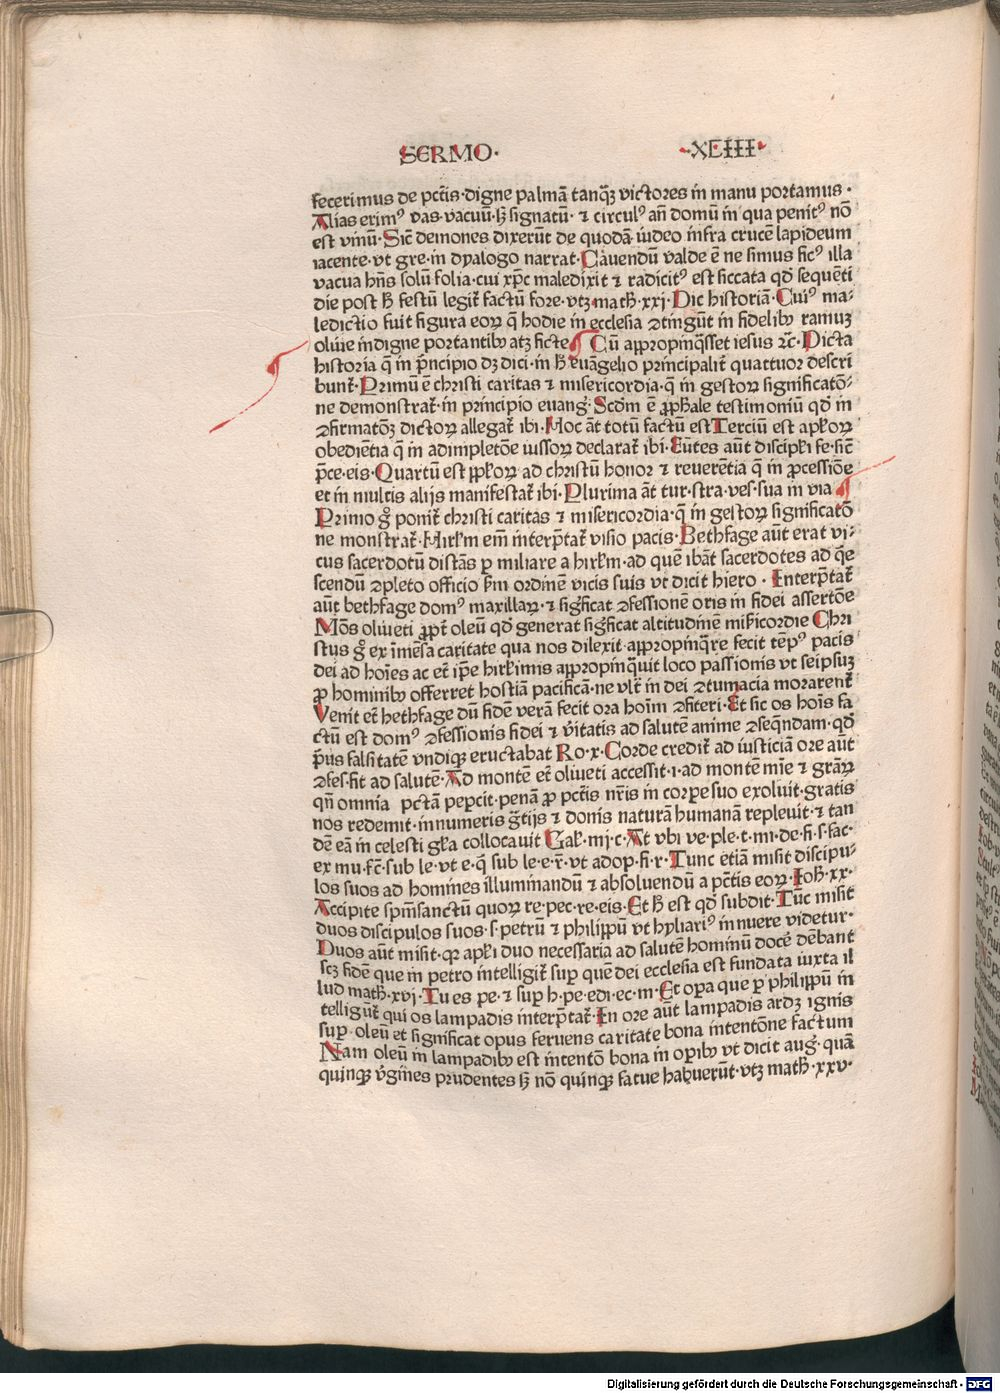 SERMO· ·XLIIII·
fecerimus de pctīs·digne palmā tanqꝫ victores in manu portamus·
Alias erimꝰ vas vacuū·sꝫ signatū·⁊ circulꝰ añ domū in qua penitꝰ nō
est vinū·Sic̄ demones dixerūt de quodā iudeo infra crucē lapideum
iacente·vt gre·in dyalogo narrat·Cauendū valde ē ne simus ficꝰ illa
vacua hñs solū folia·cui xp̄c maledixit ⁊ radicitꝰ est siccata qđ sequēti
die post h̄ festū legit̄ factū fore·vtꝫ math̄·xxj·Dic historiā·Cuiꝰ ma⸗
ledictio fuit figura eoꝝ q̄ hodie in ecclesia ꝯtingūt in fidelibꝰ ramuꝫ
oliuie indigne portantibꝰ atqꝫ ficte Cū appropinq̄sset iesus ⁊c̄·Dicta
historia q̄ in p̄ncipio dꝫ dici·in h̄ euāgelio principalit̄ quattuor descri
bunt̄·Primū ē christi caritas ⁊ misericordia·q̄ in gestoꝝ significatō⸗
ne demonstrat̄·in principio euanḡ·Scđm ē ꝓph̄ale testimoniū qđ in
ꝯfirmatōꝫ dictoꝝ allegat̄ ibi·Hoc āt totū factū est Terciū est apl̄oꝝ
obediētia q̄ in adimpletōe iussoꝝ declarat̄ ibi·Eūtes aūt discipl̄i fe·sic̄
p̄ce·eis·Quartū est ppl̄oꝝ ad christū honor ⁊ reuerētia q̄ in ꝓcessiōe
et in multis alijs manifestat̄ ibi·Plurima āt tur·stra·ves·sua in via
Primo g̊ ponit̄ christi caritas ⁊ misericordia·q̄ in gestoꝝ significatō
ne monstrat̄·Hirl̄m em̄ interp̄tat̄ visio pacis·Bethfage aūt erat vi⸗
cus sacerdotū distās ꝑ miliare a hirl̄m·ad quē ibāt sacerdotes ad q̄e
scendū ꝯpleto officio ẜm ordinē vicis suis vt dicit hiero·Interp̄tat̄
aūt bethfage domꝰ maxillaꝝ·⁊ sig̑ficat ꝯfessionē oris in fidei assertōe
Mōs oliueti ꝓpt̄ oleū qđ generat sig̑ficat altitudinē mīcordie Chri
stus g̊ ex īmēsa caritate qua nos dilexit·appropinq̄re fecit tēpꝰ pacis
dei ad hoīes ac et̄ ip̄e hirl̄imis appropinq̄uit loco passionis vt seipsuꝫ
ꝓ hominibꝰ offerret hostiā pacificā·ne vlt̄ in dei ꝯtumacia morarent̄
Venit et̄ hethfage dū fidē verā fecit ora hoīm ꝯfiteri·Et sic os hoīs fa
ctū est domꝰ ꝯfessionis fidei ⁊ v̄itatis ad salutē anime ꝯseq̄ndam·qđ
p̄us falsitatē vndiqꝫ eructabat Ro·x·Corde credit̄ ad iusticiā ore aūt
ꝯfes·fit ad salutē·Ad montē et̄ oliueti accessit·i·ad montē mīe ⁊ grāꝝ
qñ omnia pctā pepcit·penā ꝓ pctīs nr̄is in corpe suo exoluit·gratis
nos redemit·innumeris g̑tijs ⁊ donis naturā humanā repleuit·⁊ tan
dē eā in celesti gl̄a collocauit Gal̄·iiij·c·At vbi ve·ple·t·mi·de·fi·s·fac·
ex mu·fc̄·sub le·vt e·q̄ sub le·e·r̄·vt adop·fi·r·Tunc etiā misit discipu⸗
los suos ad homines illuminandū ⁊ absoluendū a pctīs eoꝝ·Ioh̄·xx·
Accipite spm̄sanctū quoꝝ re·pec·re·eis·Et h̄ est qđ subdit·Tūc misit
duos discipulos suos·s·petrū ⁊ philippū vt hylariꝰ innuere videtur·
Duos aūt misit·qꝛ apl̄i duo necessaria ad salutē hominū docē dēbant
scꝫ fidē que in petro intelligit̄ sup quē dei ecclesia est fundata iuxta il
lud math̄·xvj·Tu es pe·⁊ sup h·pe·edi·ec·m·Et opa que ꝑ philippū in
telligūt̄ qui os lampadis interp̄tat̄·In ore aūt lampadis ardꝫ ignis
sup oleū et significat opus feruens caritate bona intentōne factum
Nam oleū in lampadibꝰ est intentō bona in opibꝰ vt dicit aug̑·quā
quinqꝫ v̄gines prudentes sꝫ nō quinqꝫ fatue habuerūt·vtꝫ math̄·xxv·
Digitalisierung gefördert durch die Deutsche Forschungsgemeinschaft - DFG